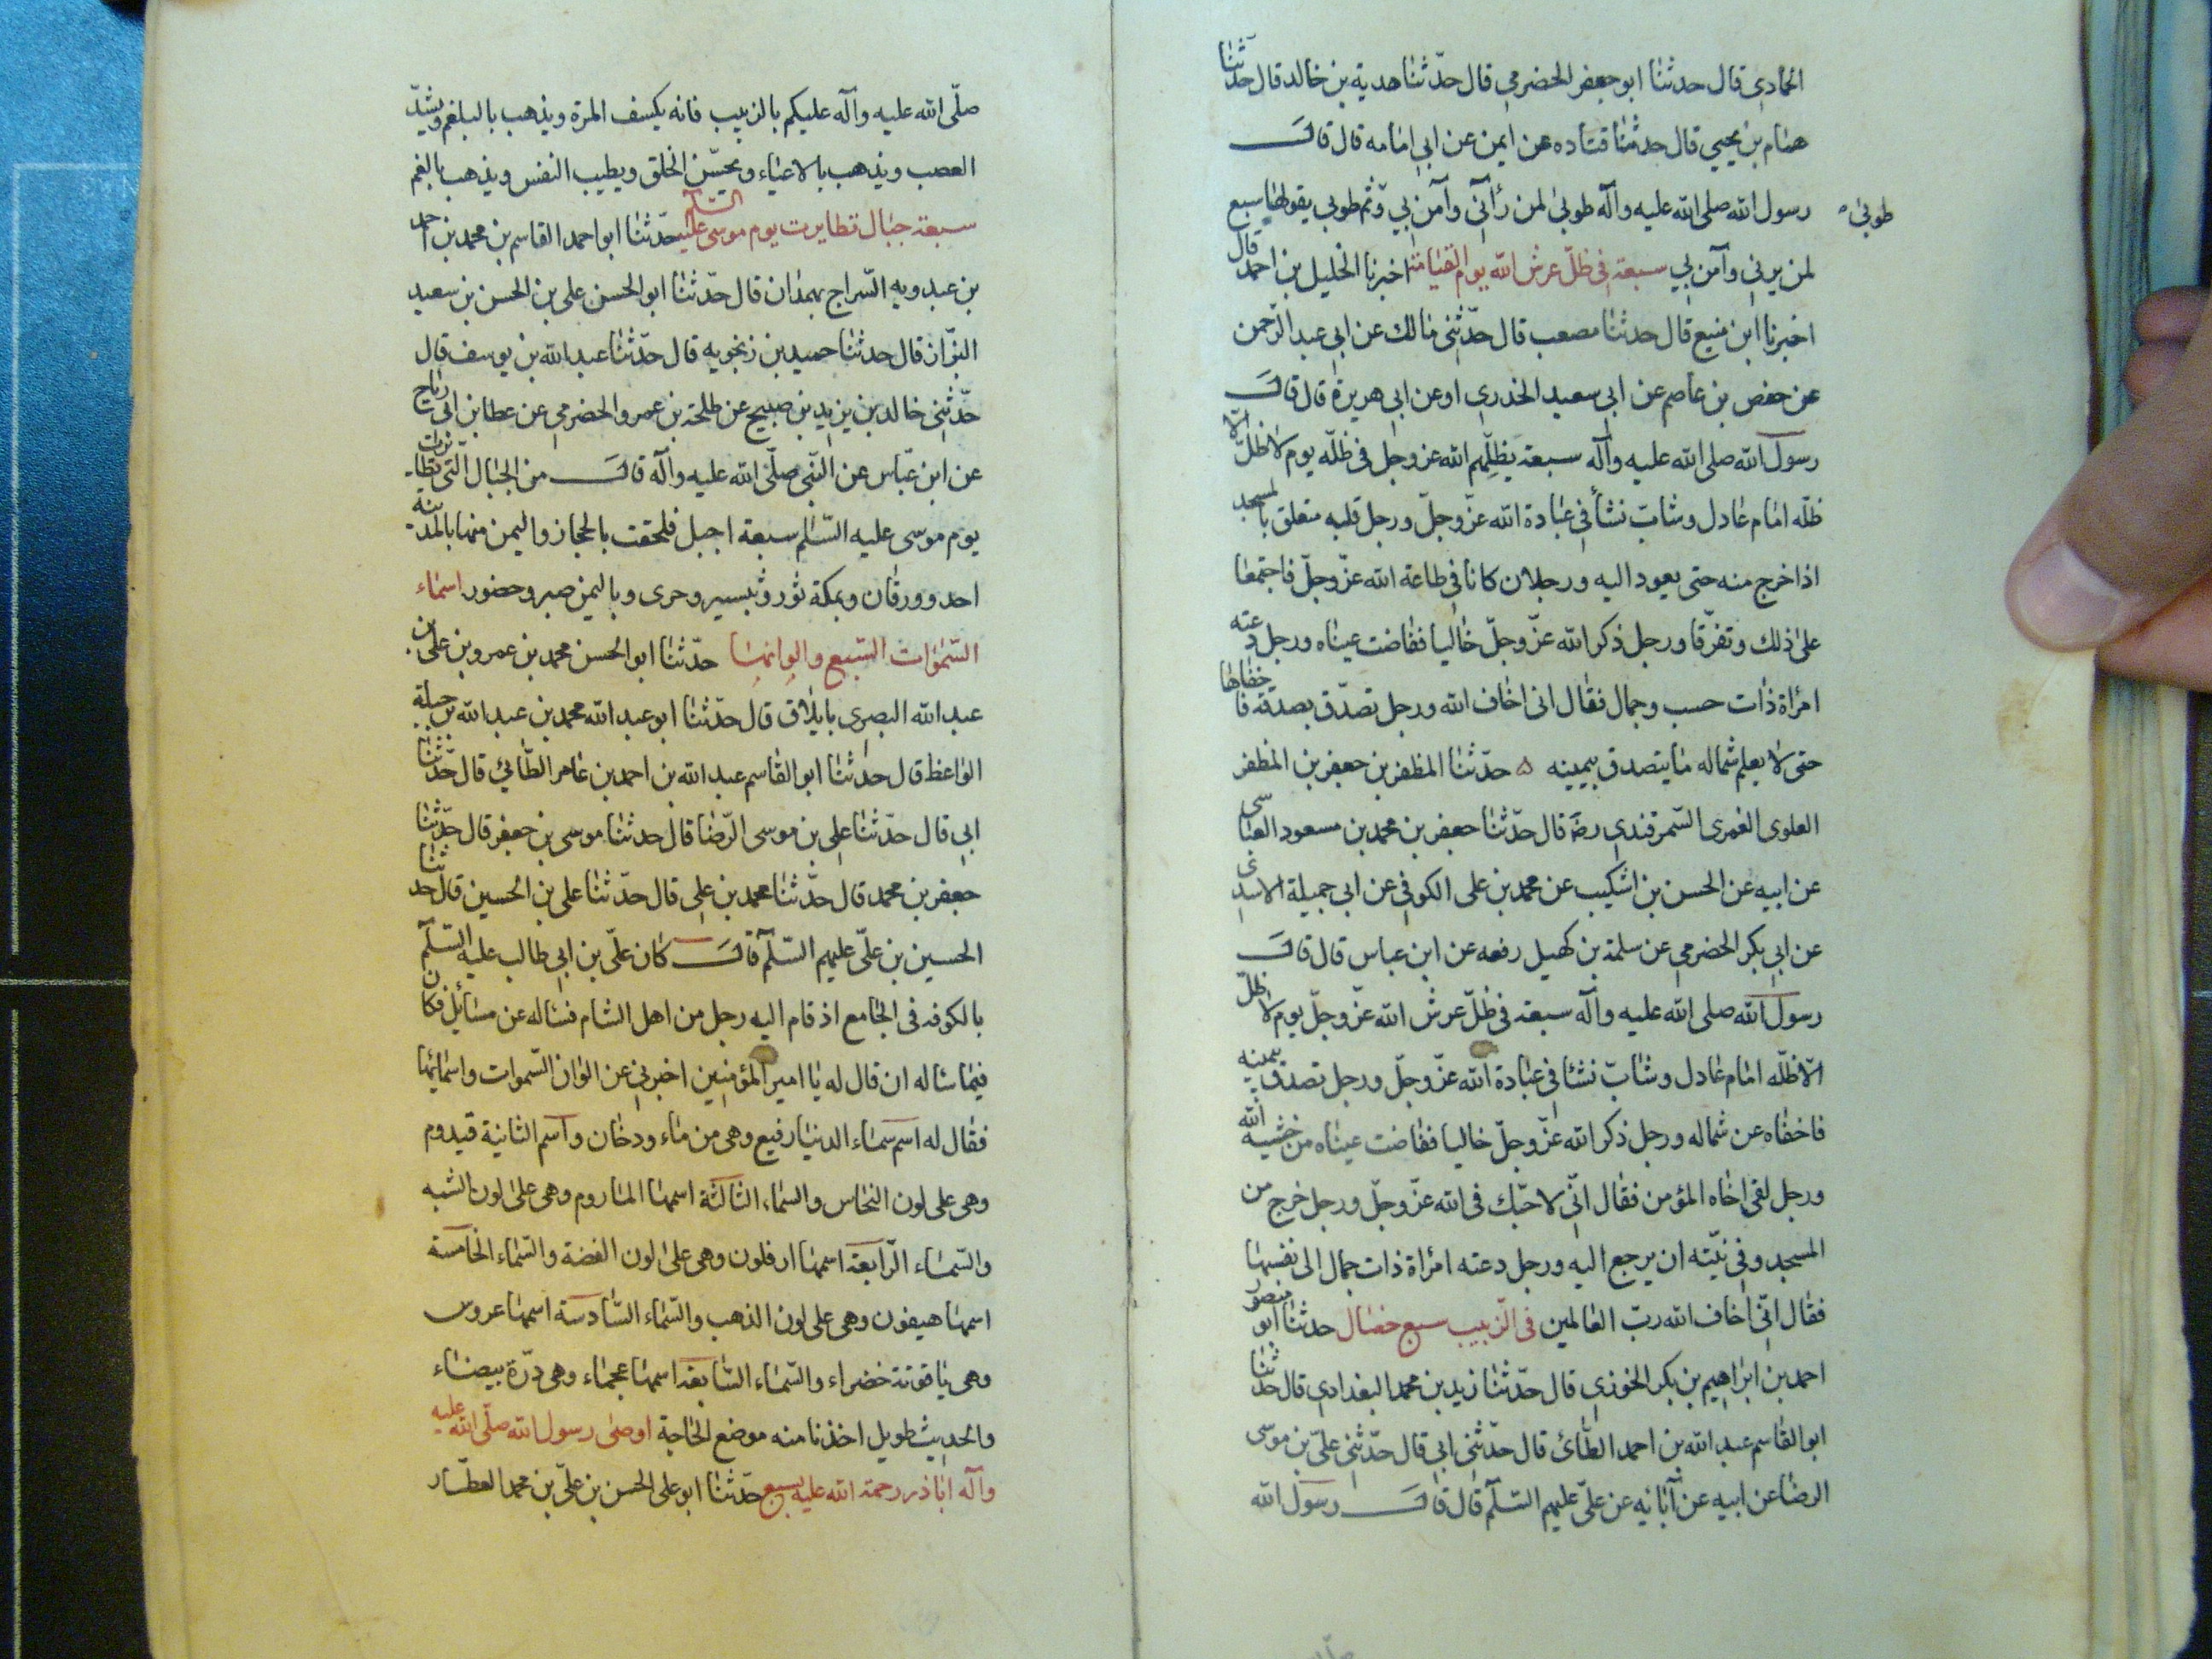 الحمادي قال حدثنا ابو جعفر الحضرمي قال حدّثنا هدبة بن خالد قال حدثنا
همام بن يحيى قال حدثنا قتاده عن ايمن عن ابي امامه قال قال
رسول الله صلى الله عليه وآله طوبى لمن رأني وآمن بي وثم طوبى يقولها سبع
طوبى
لمن يرني وآمن بي سبعة في ظلّ عرش الله يوم القيامة اخبرنا الخليل بن احمد قال
اخبرنا ابن منيع قال حدثنا مصعب قال حدّثني مالك عن ابي عبد الرّحمن
عن حفص بن عاصم عن ابي سعيد الخدري او عن ابي هريرة قال قال
رسول الله صلى الله عليه وآله سبعة يظلّهم الله عز وجل في ظلّه يوم لا ظلّ الّا
ظلّه امام عادل وشابّ نشأ في عبادة الله عزّ وجلّ ورجل قلبه متعلق بالمسجد
اذا خرج منه حتى يعود اليه ورجلان كانا في طاعة الله عزّ وجلّ فاجتمعا
على ذلك وتفرّقا ورجل ذكر الله عزّ وجلّ خاليا ففاضت عيناه ورجل دعته
امرأة ذات حسب وجمال فقال اني اخاف الله ورجل تصدّق بصدقة فاخفاها
حتى لا يعلم شماله ما يتصدق بيمينه ۵ حدّثنا المظفر بن جعفر بن المظفر
العلوى العمرى السّمرقندي رضه قال حدّثنا جعفر بن محمد بن مسعود العياشى
عن ابيه عن الحسن بن اشكيب عن محمد بن على الكوفي عن ابي جميلة الاسدى
عن ابي بكر الحضرمي عن سلمة بن كهيل رفعه عن ابن عباس قال قال
رسول الله صلى الله عليه وآله سبعة في ظلّ عرش الله عزّ وجلّ يوم لا ظلّ
الّا ظلّه امام عادل وشابّ نشئا في عبادة الله عزّ وجلّ ورجل تصدق بيمينه
فاخفاه عن شماله ورجل ذكر الله عزّ وجلّ خاليا ففاضت عيناه من خشيه الله
ورجل لقى اخاه المؤمن فقال انّي لاحبّك في الله عزّ وجلّ ورجل خرج من
المسجد وفي نيّته ان يرجع اليه ورجل دعته امرأة ذات جمال الى نفسها
فقال انّى اخاف الله ربّ العالمين في الزبيب سبع خصال حدثنا ابو منصور
احمد بن ابراهيم بن بكر الخوزي قال حدّثنا زيد بن محمد البغدادي قال حدثنا
ابو القاسم عبد الله بن احمد الطّائ قال حدّثني ابي قال حدّثني علىّ بن موسى
الرضا عن ابيه عن آبائه عن علىّ عليهم السّلم قال قال رسول الله
صلّى الله عليه وآله عليكم بالزبيب فانه يكسف المرة ويذهب بالبلغم ويشدّ
العصب ويذهب بالاعياء ويحسّن الخلق ويطيب النفس ويذهب بالغم
سبعة جبال تطايرت يوم موسى عليه السّلم حدّثنا ابو احمد القاسم بن محمد بن احمد
بن عبدويه السّراج بهمدان قال حدّثنا ابو الحسن على بن الحسن بن سعيد
البزّاز قال حدثنا حميد بن زنجويه قال حدّثنا عبد الله بن يوسف قال
حدّثني خالد بن يزيد بن صبيح عن طلحة بن عمرو الحضرمي عن عطا بن ابي رباح
عن ابن عبّاس عن النّبي صلّى الله عليه وآله قال من الجبال التى تطايرت
يوم موسى عليه السّلم سبعة اجبل فلحقت بالحجاز واليمن منها بالمدينه
احد وورقان وبمكة ثور وثبير وحرى وباليمن صبر وحضور اسماء
السّموات السّبع والوانها حدّثنا ابو الحسن محمد بن عمرو بن على بن
عبد الله البصرى بايلاق قال حدّثنا ابو عبد الله محمد بن عبد الله بن جبلة
الواعظ قال حدثنا ابو القاسم عبد الله بن احمد بن عامر الطّائي قال حدّثنا
ابي قال حدّثنا على بن موسى الرّضا قال حدثنا موسى بن جعفر قال حدّثنا
جعفر بن محمد قال حدّثنا محمد بن على قال حدّثنا على بن الحسين قال حدثنا
الحسين بن علىّ عليهم السّلم قال كان علىّ بن ابي طالب عليه السّلم
بالكوفه في الجامع اذ قام اليه رجل من اهل الشام فساله عن مسائل فكان
فيما ساله ان قال له يا امير المؤمنين اخبرني عن الوان السّموات واسمائها
فقال له اسم سماء الدنيا رفيع وهى من ماء ودخان واسم الثانية قيدوم
وهى على لون النحاس والسماء الثالثة اسمها الماروم وهى على لون الشبه
والسّماء الرّابعة اسمها ارفلون وهى على لون الفضة والسّماء الخامسة
اسمها هيفون وهى على لون الذهب والسّماء السّادسة اسمها عروس
وهى ياقوتة خضراء والسّماء السّابعة اسمها عجماء وهى درّة بيضاء
والحديث طويل اخذنا منه موضع الحاجة اوصى رسول الله صلّى الله عليه
وآله اباذر رحمة الله عليه بسبع حدّثنا ابو على الحسن بن علىّ بن محمد العطّار